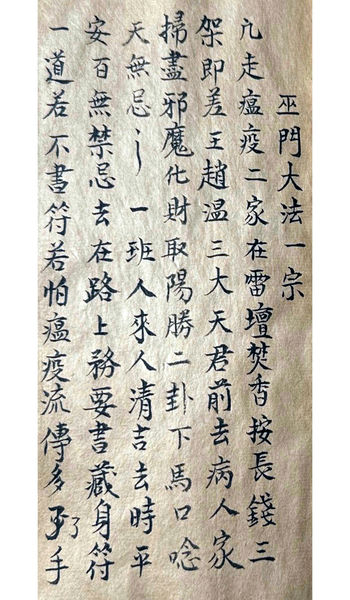 巫門大法一宗
凢走瘟疫二家在雷壇焚香按長錢三
架即差王趙温三大天君前去病人家
掃盡邪魔化財取陽勝二卦下馬口唸
天無忌〻一班人來人清吉去時平
安百無禁忌去在路上務要書藏身符
一道若不書符若怕瘟疫流傳多了手